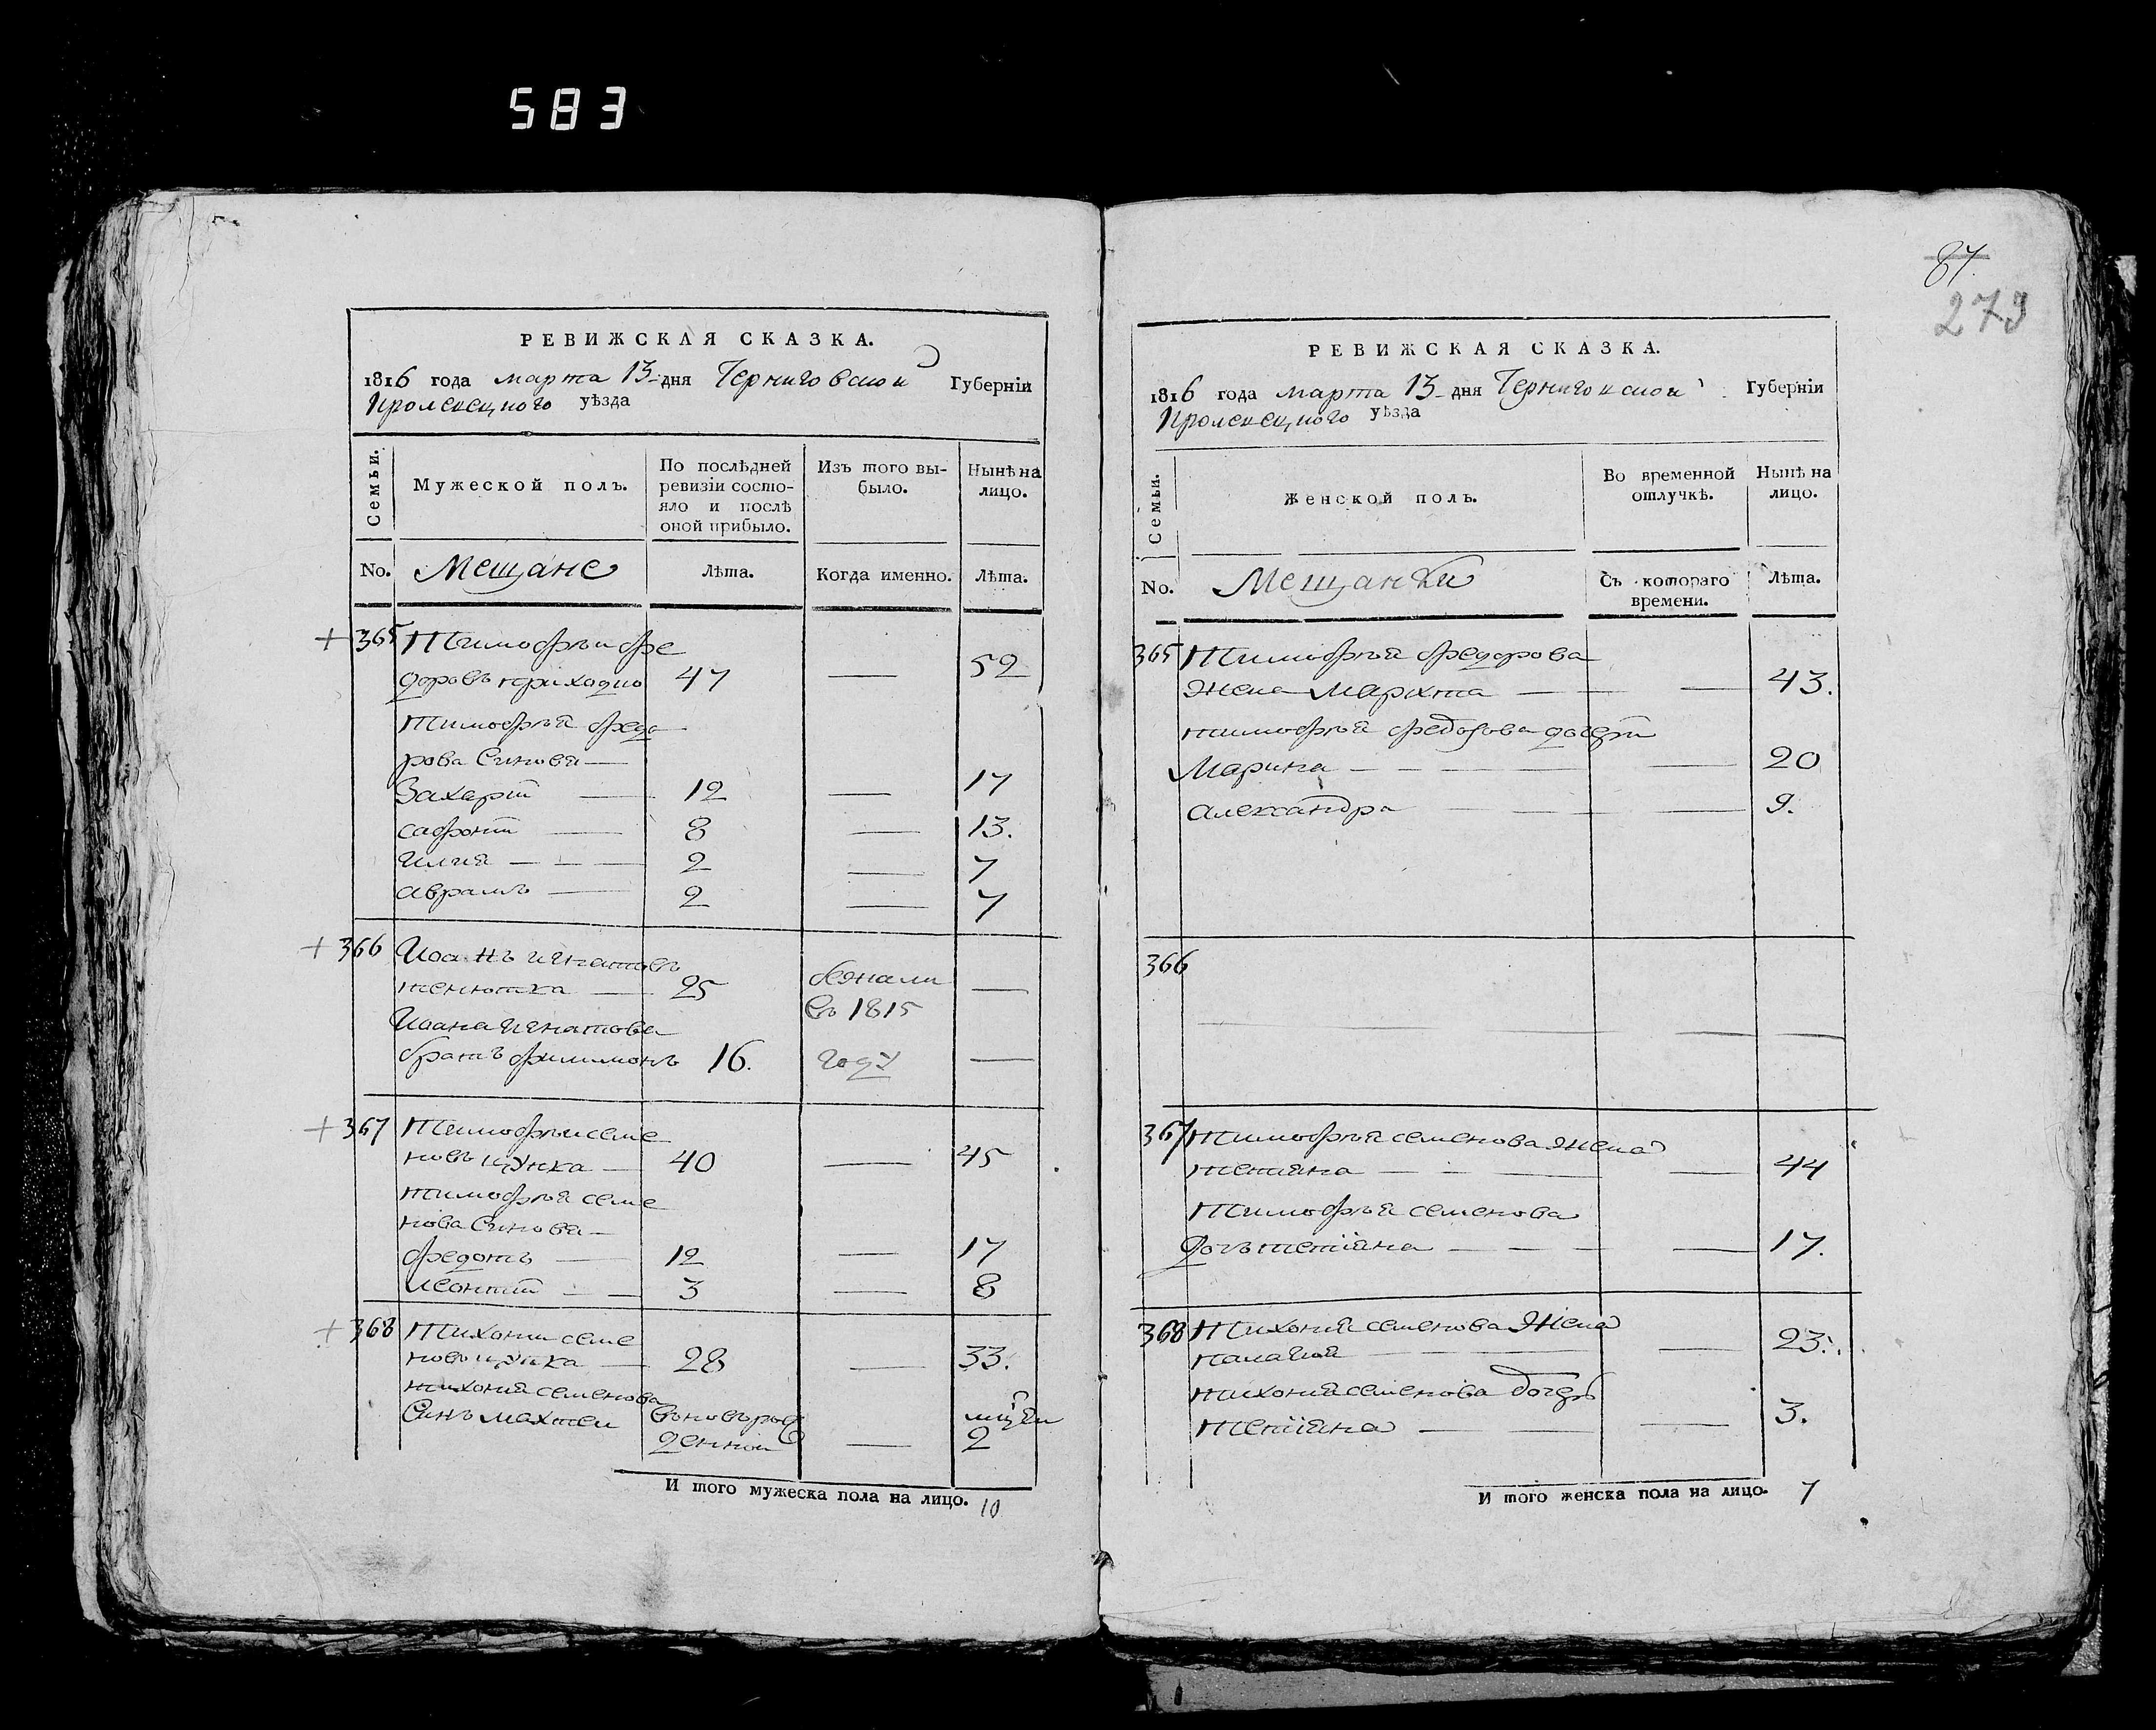 583
РЕВИЖСКАЯ СКАЗКА.
1816 года марта 13 дня Черниговской Губерніи
Кролевецкого уѣзда
Семьи.
Мужеской полъ.
По послѣдней
ревизіи состо-
яло и послѣ
оной прибыло.
Изъ того вы-
было.
Нынѣ на
лицо.
No.
Мещане
Лѣта.
Когда именно.
Лѣта.
+ 365 Тимофѣи Фе
доровъ приходко 47 — 52
тимофѣя федо
рова Синовя —
Захарїй — 12 — 17
сафонїй — 8 — 13.
илия — 2 — 7
аврамъ — 2 — 7
+ 366 Иоанъ игнатовъ
— 25 бежали —
въ 1815
Иоана игнатова
братъ филимонъ 16. году —
+ 367 Тимофѣи семе
новъ цупка — 40 — 45
тимофѣя семе
нова Синовя —
федотъ — 12 — 17
леонтїй — 3 — 8
+ 368 Тихонии семе
новъ цупка — 28 — 33.
тихония семенова
Синъ махтеи вновъ рож
денной — 2
И того мужеска пола на лицо. 10
67
273
РЕВИЖСКАЯ СКАЗКА.
1816 года марта 13 дня Черниговской Губерніи
Кролевецкого уѣзда
Семьи.
Женской полъ.
Во временной
отлучкѣ.
Нынѣ на
лицо.
No.
Мещанки
Съ котораго
времени.
Лѣта.
365 Тимофѣя федорова
жена Мархта — — 43.
тимофѣя федорова дочери
Марина — — 20
александра — — 9.
366
— — —
367 Тимофѣя семенова жена
тетияна — — 44
Тимофѣя семенова
дочъ тетїяна — — 17.
368 Тихония семенова жена
палагия — — 23.
тихония семенова дочеръ
Тетїяна — — 3.
И того женска пола на лицо. 7